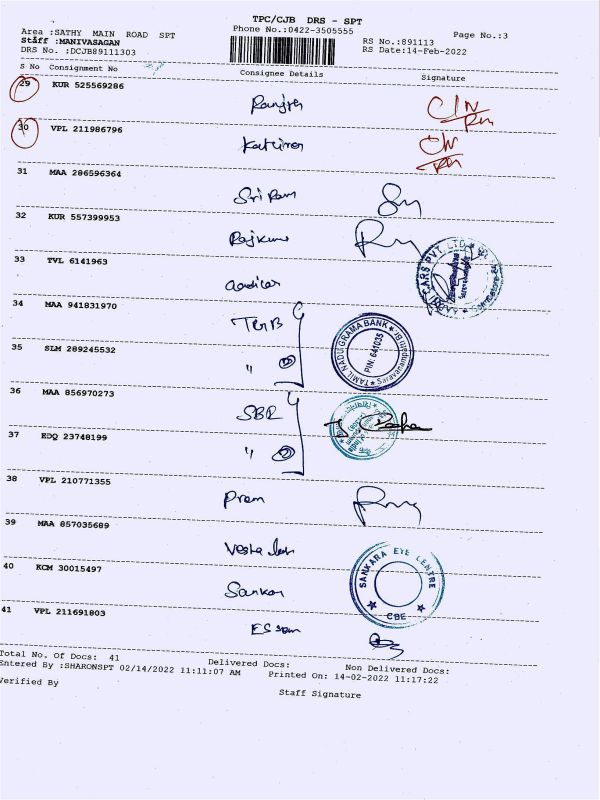 TPC/CJB DRS - SPT
Phone No.:0422-3505555
Page No.:3
Area :SATHY MAIN ROAD SPT
Staff :MANIVASAGAN
DRS No. :DCJB89111303
RS No.:891113
RS Date:14-Feb-2022
S No Consignment No Consignee Details Signature
29 KUR 525569286
Ranjith
30 VPL 211986796
Kathires
31 MAA 286596364
Sri Ram
32 KUR 557399953
Rajkumar
33 TVL 6141963
CARS PVT. LTD
34 MAA 941831970
TNGB
TAMIL NADU GRAMA BANK
PIN: 641035
35 SLM 289245532
"
36 MAA 856970273
SBR
37 EDQ 23748199
"
38 VPL 210771355
Prem
39 MAA 857035689
40 KCM 30015497
Sankar
SANKARA EYE CENTRE
CBE
41 VPL 211691803
Total No. Of Docs: 41 Delivered Docs: Non Delivered Docs:
Entered By :SHARONSPT 02/14/2022 11:11:07 AM Printed On: 14-02-2022 11:17:22
Verified By Staff Signature